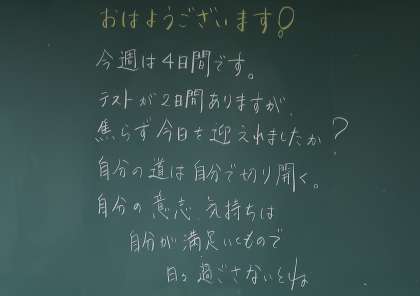 おはようございます!
今週は4日間です。
テストが2日間ありますが、
焦らず今日を迎えれましたか?
自分の道は自分で切り開く。
自分の意志、気持ちは
自分が満足いくもので
日々過ごさないとね